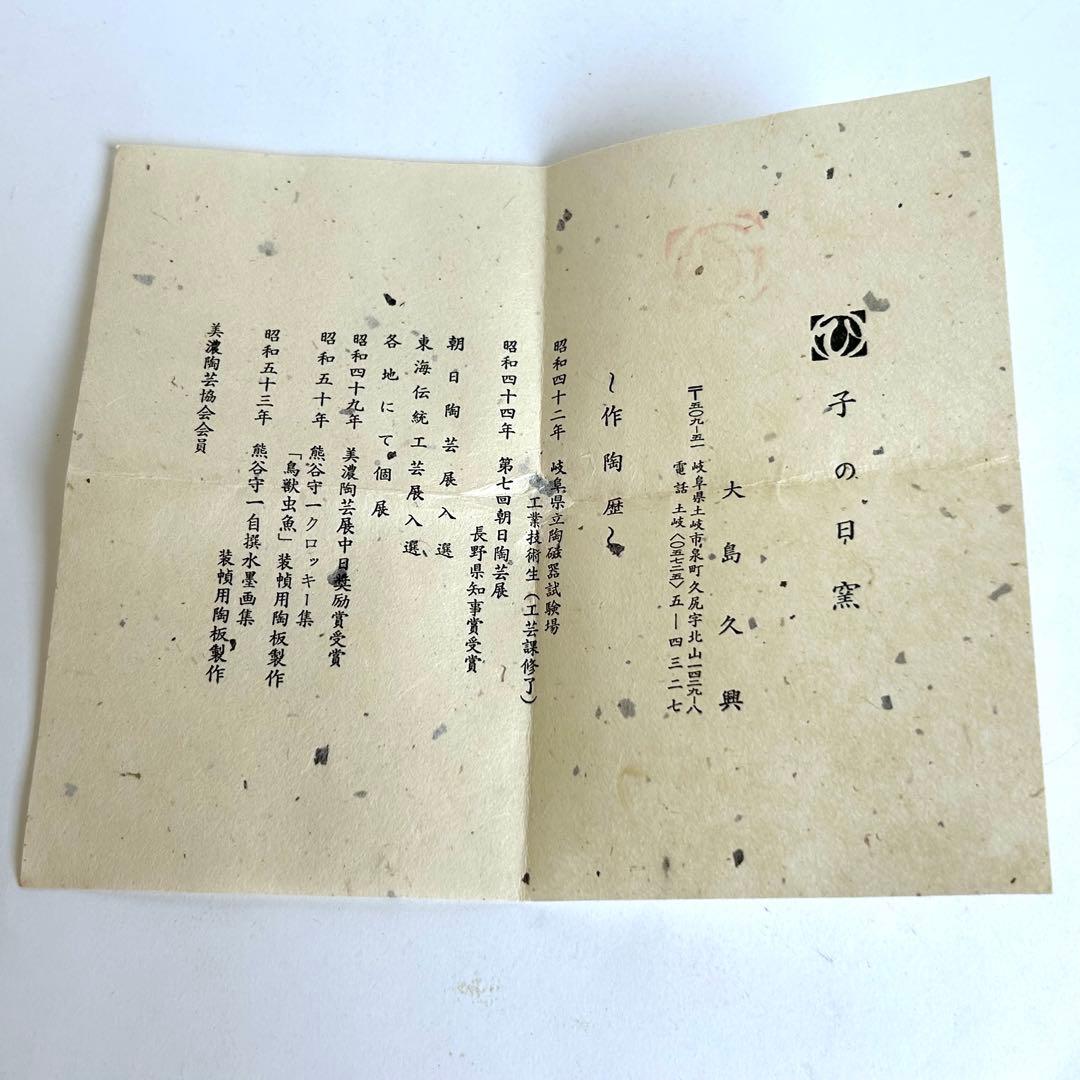 子の日窯
大島久興
〒五〇九-五一 岐阜県土岐市泉町久尻字北山一四二九-八
電話 土岐〈〇五七二五〉五―四三二七
~作陶歴~
昭和四十二年 岐阜県立陶磁器試験場
工業技術生(工芸課修了)
昭和四十四年 第七回朝日陶芸展
長野県知事賞受賞
朝日陶芸展入選
東海伝統工芸展入選、
各地にて個展
昭和四十九年 美濃陶芸展中日奨励賞受賞
昭和五十年 熊谷守一クロッキー集
「鳥獣虫魚」装幀用陶板製作
昭和五十三年 熊谷守一自撰水墨画集
装幀用陶板製作
美濃陶芸協会会員